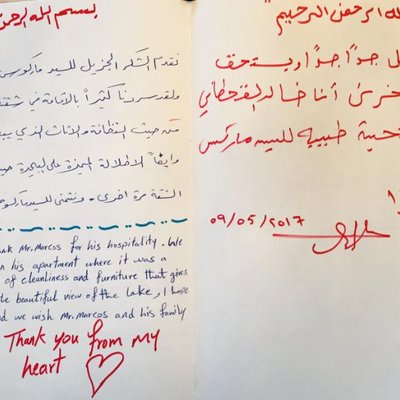 بسم الله الرحمن
نقدم الشكر الجزيل للسيد ماركوس
ولقد سررنا كثيراً بالاقامة في شقته
من حيث النظافة والاثاث الذي
وايضاً الاطلالة المميزة على البحيرة
الشقة مرة اخرى. ونتمنى للسيد ماركوس
ank Mr. Marcos for his hospitality. We
n his apartment where it was a
of cleanliness and furniture that gives
te beautiful view of the lake, I hope
d we wish Mr. Marcos and his family
Thank you from my
heart
الله الرحمن الرحيم"
جداً جداً ويستحق
أنا خالد القحطاني
تحية طيبة للسيد ماركس
09/05/2017